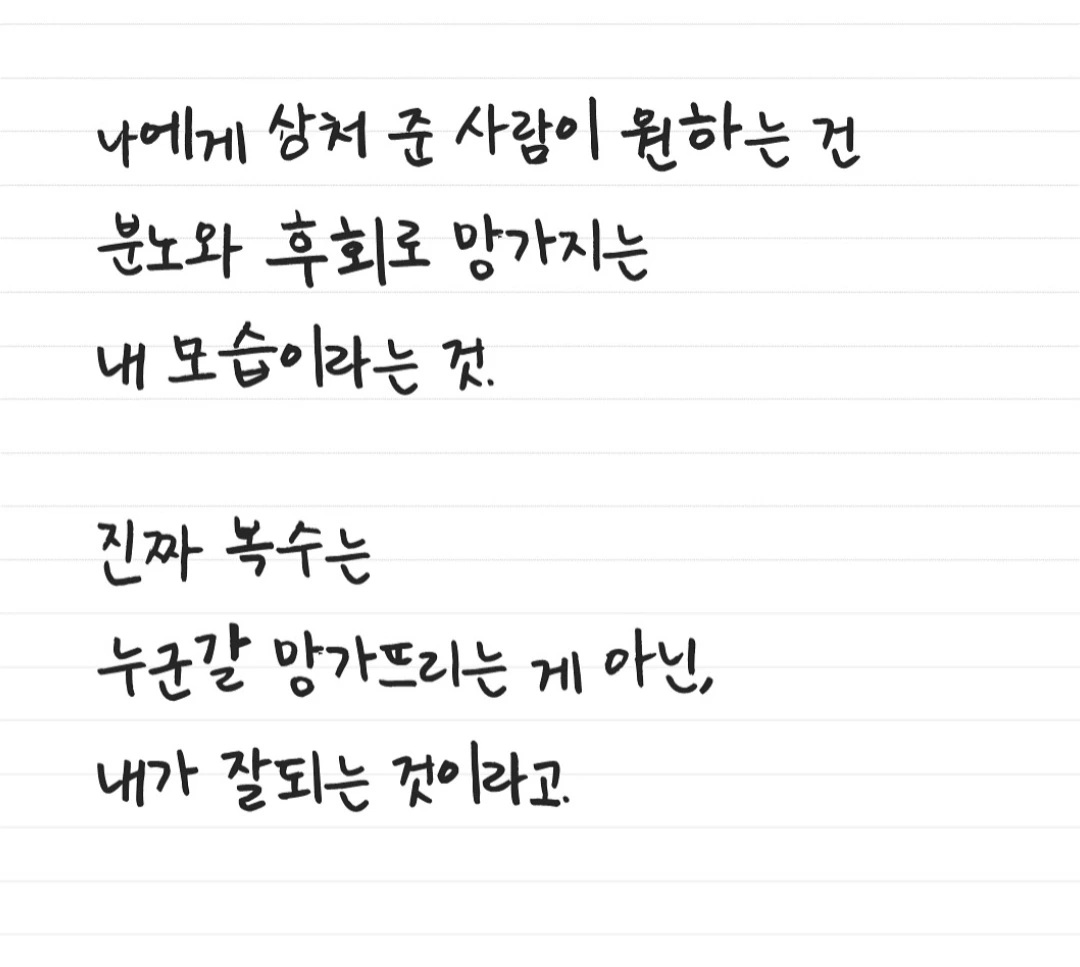 나에게 상처 준 사람이 원하는 건
분노와 후회로 망가지는
내 모습이라는 것.
진짜 복수는
누군갈 망가뜨리는 게 아닌,
내가 잘되는 것이라고.